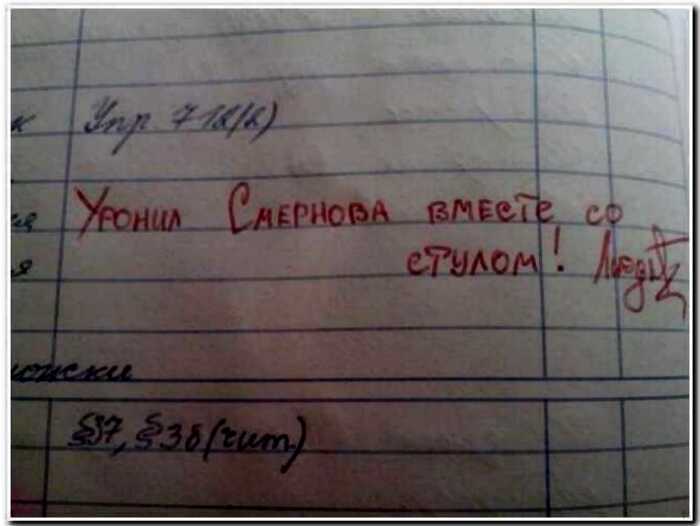 к Упр 712(2)
Уронил Смернова вместе со
я
стулом!
я
§37, §38 (чит.)